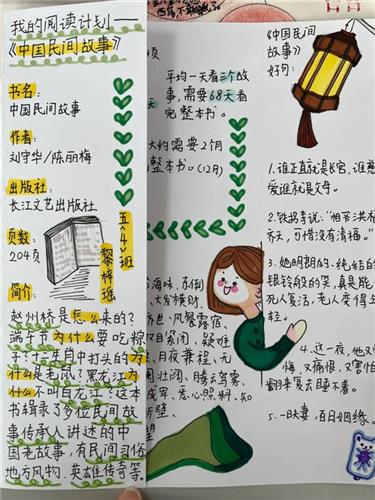 我的阅读计划——
《中国民间故事》
书名:
中国民间故事
作者:
刘守华/陈丽梅
出版社:
长江文艺出版社
页数:
204页
五〈4〉班
简介:
赵州桥是怎么来的?
端午节为什么要吃粽
子?十二生肖中打头的为
什么是老鼠?黑龙江为
什么不叫白龙江?这本
书辑录了多位民间故
事传承人讲述的中
国老故事,有民间习俗
地方风物、英雄传奇等。
平均一天看三个故
事,需要68天看
完整本书。
大约需要2个月
整本书。(12月)
海味、东倒
、大发横财、
风餐露宿、
闭、疑难
、日夜兼程、无
阔、腾云驾雾、
成军、悉心照料、知
《中国民间
故事》
好句:
1.谁正直就是长官,谁慈
爱谁就是父母。
2.铁拐李说:“相公洪福
齐天,可惜没有清福。”
3.她明朗的、纯结的
银铃般的笑,真是能
死人复活,老人变得年
轻。
4.这一夜,他又
悔,又痛恨,又害怕
翻来复去睡不着。
5.一日夫妻,百日姻缘。